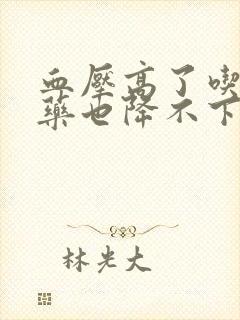 血壓高了喫
藥也降不下
林光大